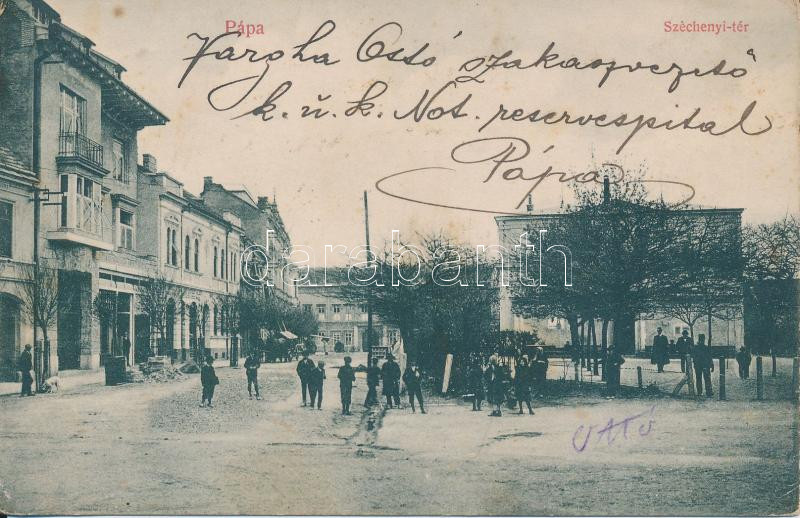 Pápa
Szèchenyi-tér
Vargha Ottó szakaszvezető
k. u. k. Not. reservespital
Pápa
darabanth
VATÓ